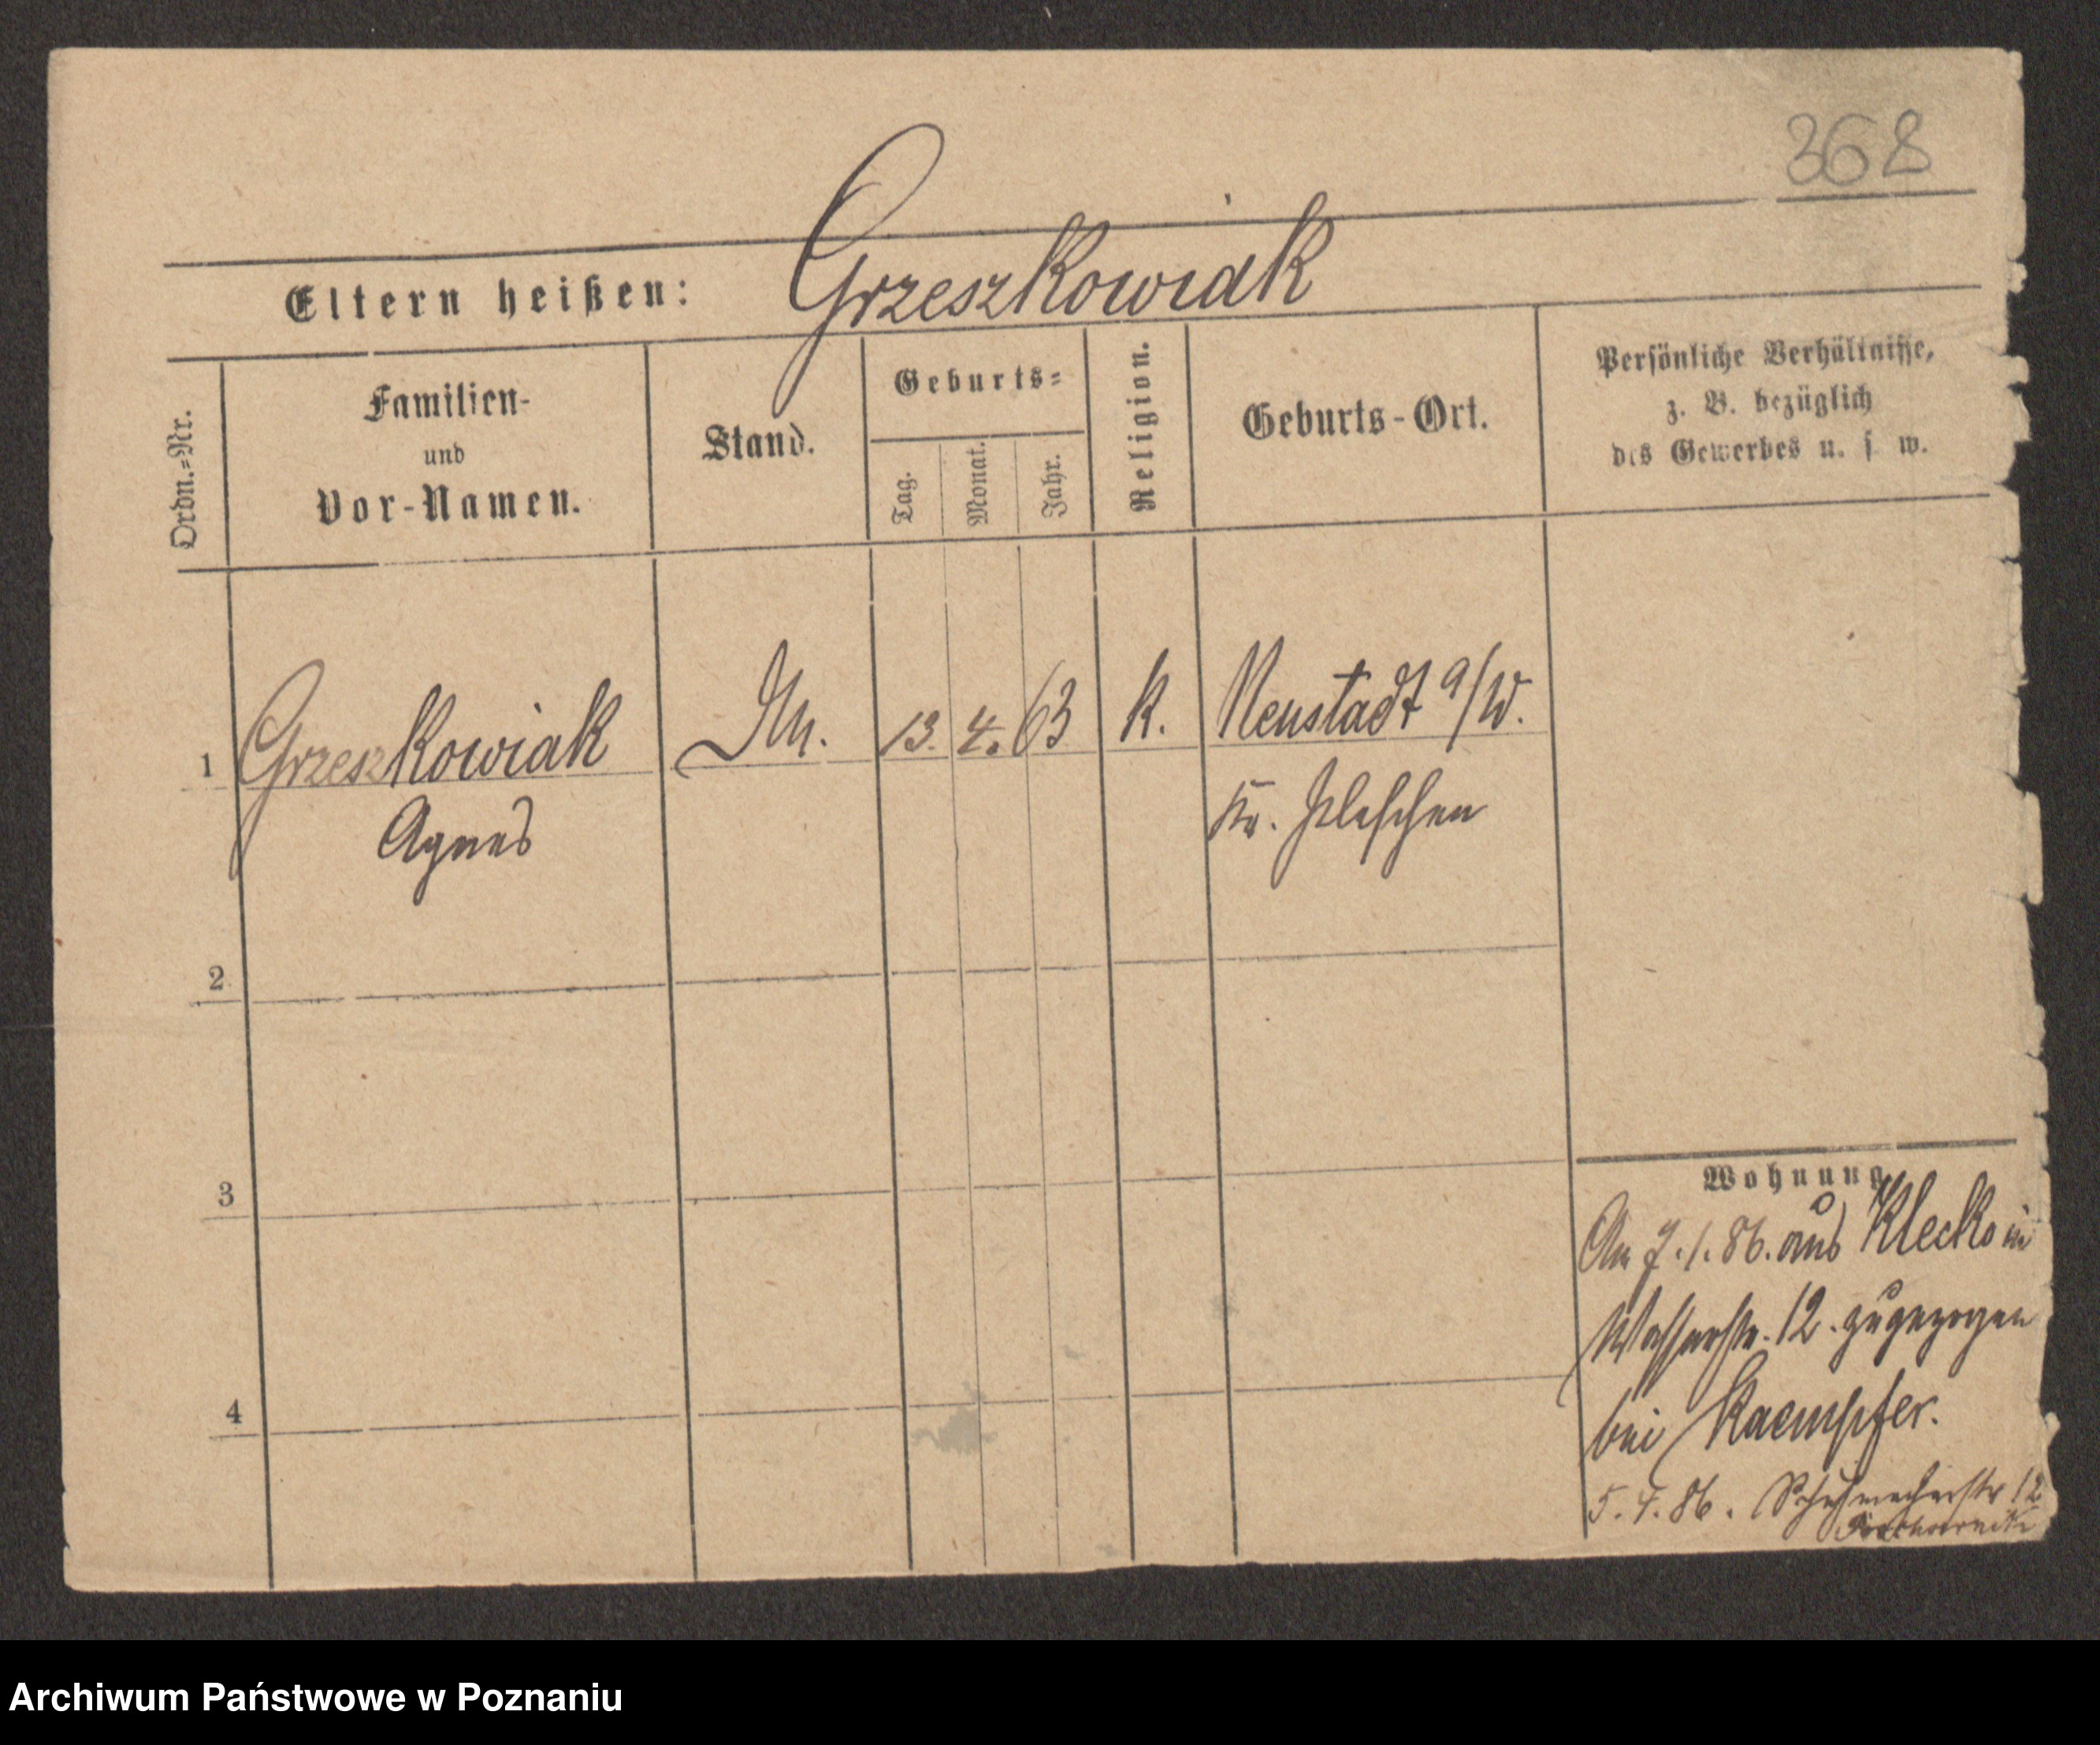 368
Eltern heißen: Grzeszkowiak
Ordn.=Nr.
Familien-
und
Vor-Namen.
Stand.
Geburts=
Tag.
Monat.
Jahr.
Religion.
Geburts-Ort.
Persönliche Verhältnisse,
z. B. bezüglich
des Gewerbes u. s w.
1 Grzeszkowiak 13. 4. 63 k. Neustadt a/W.
Agnes Kr. Pleschen
2
3
4
Wohnung
An 7.1.86. aus Klecko in
Wasserstr. 12. zugezogen
bei Kaempfer.
5.4.86. Schuhmacherstr 12
Archiwum Państwowe w Poznaniu